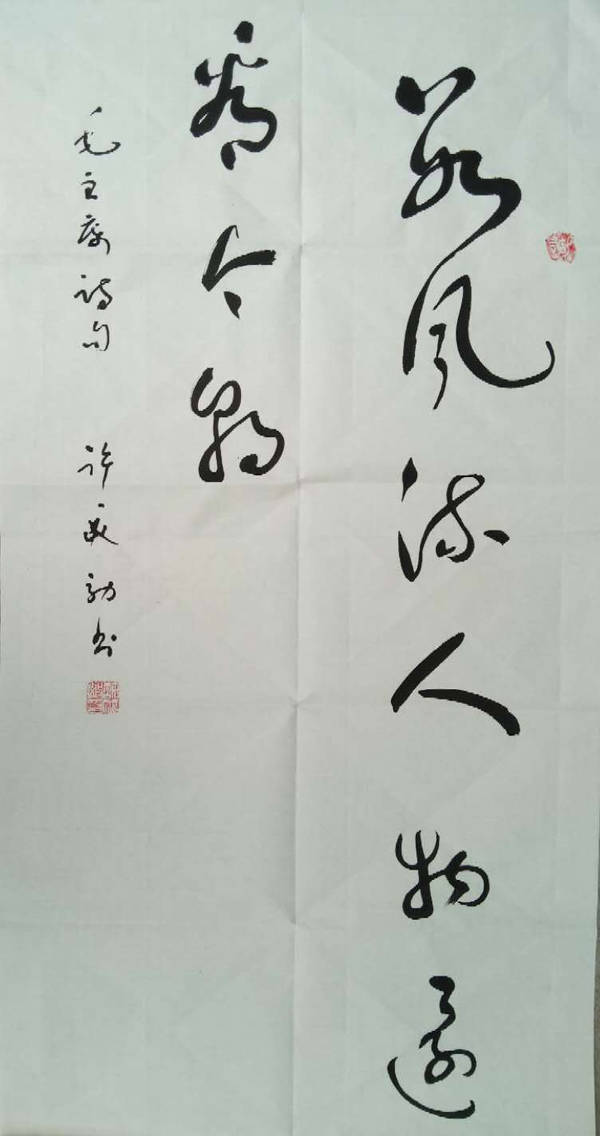 数风流人物还
看今朝
毛主席诗句 许 书